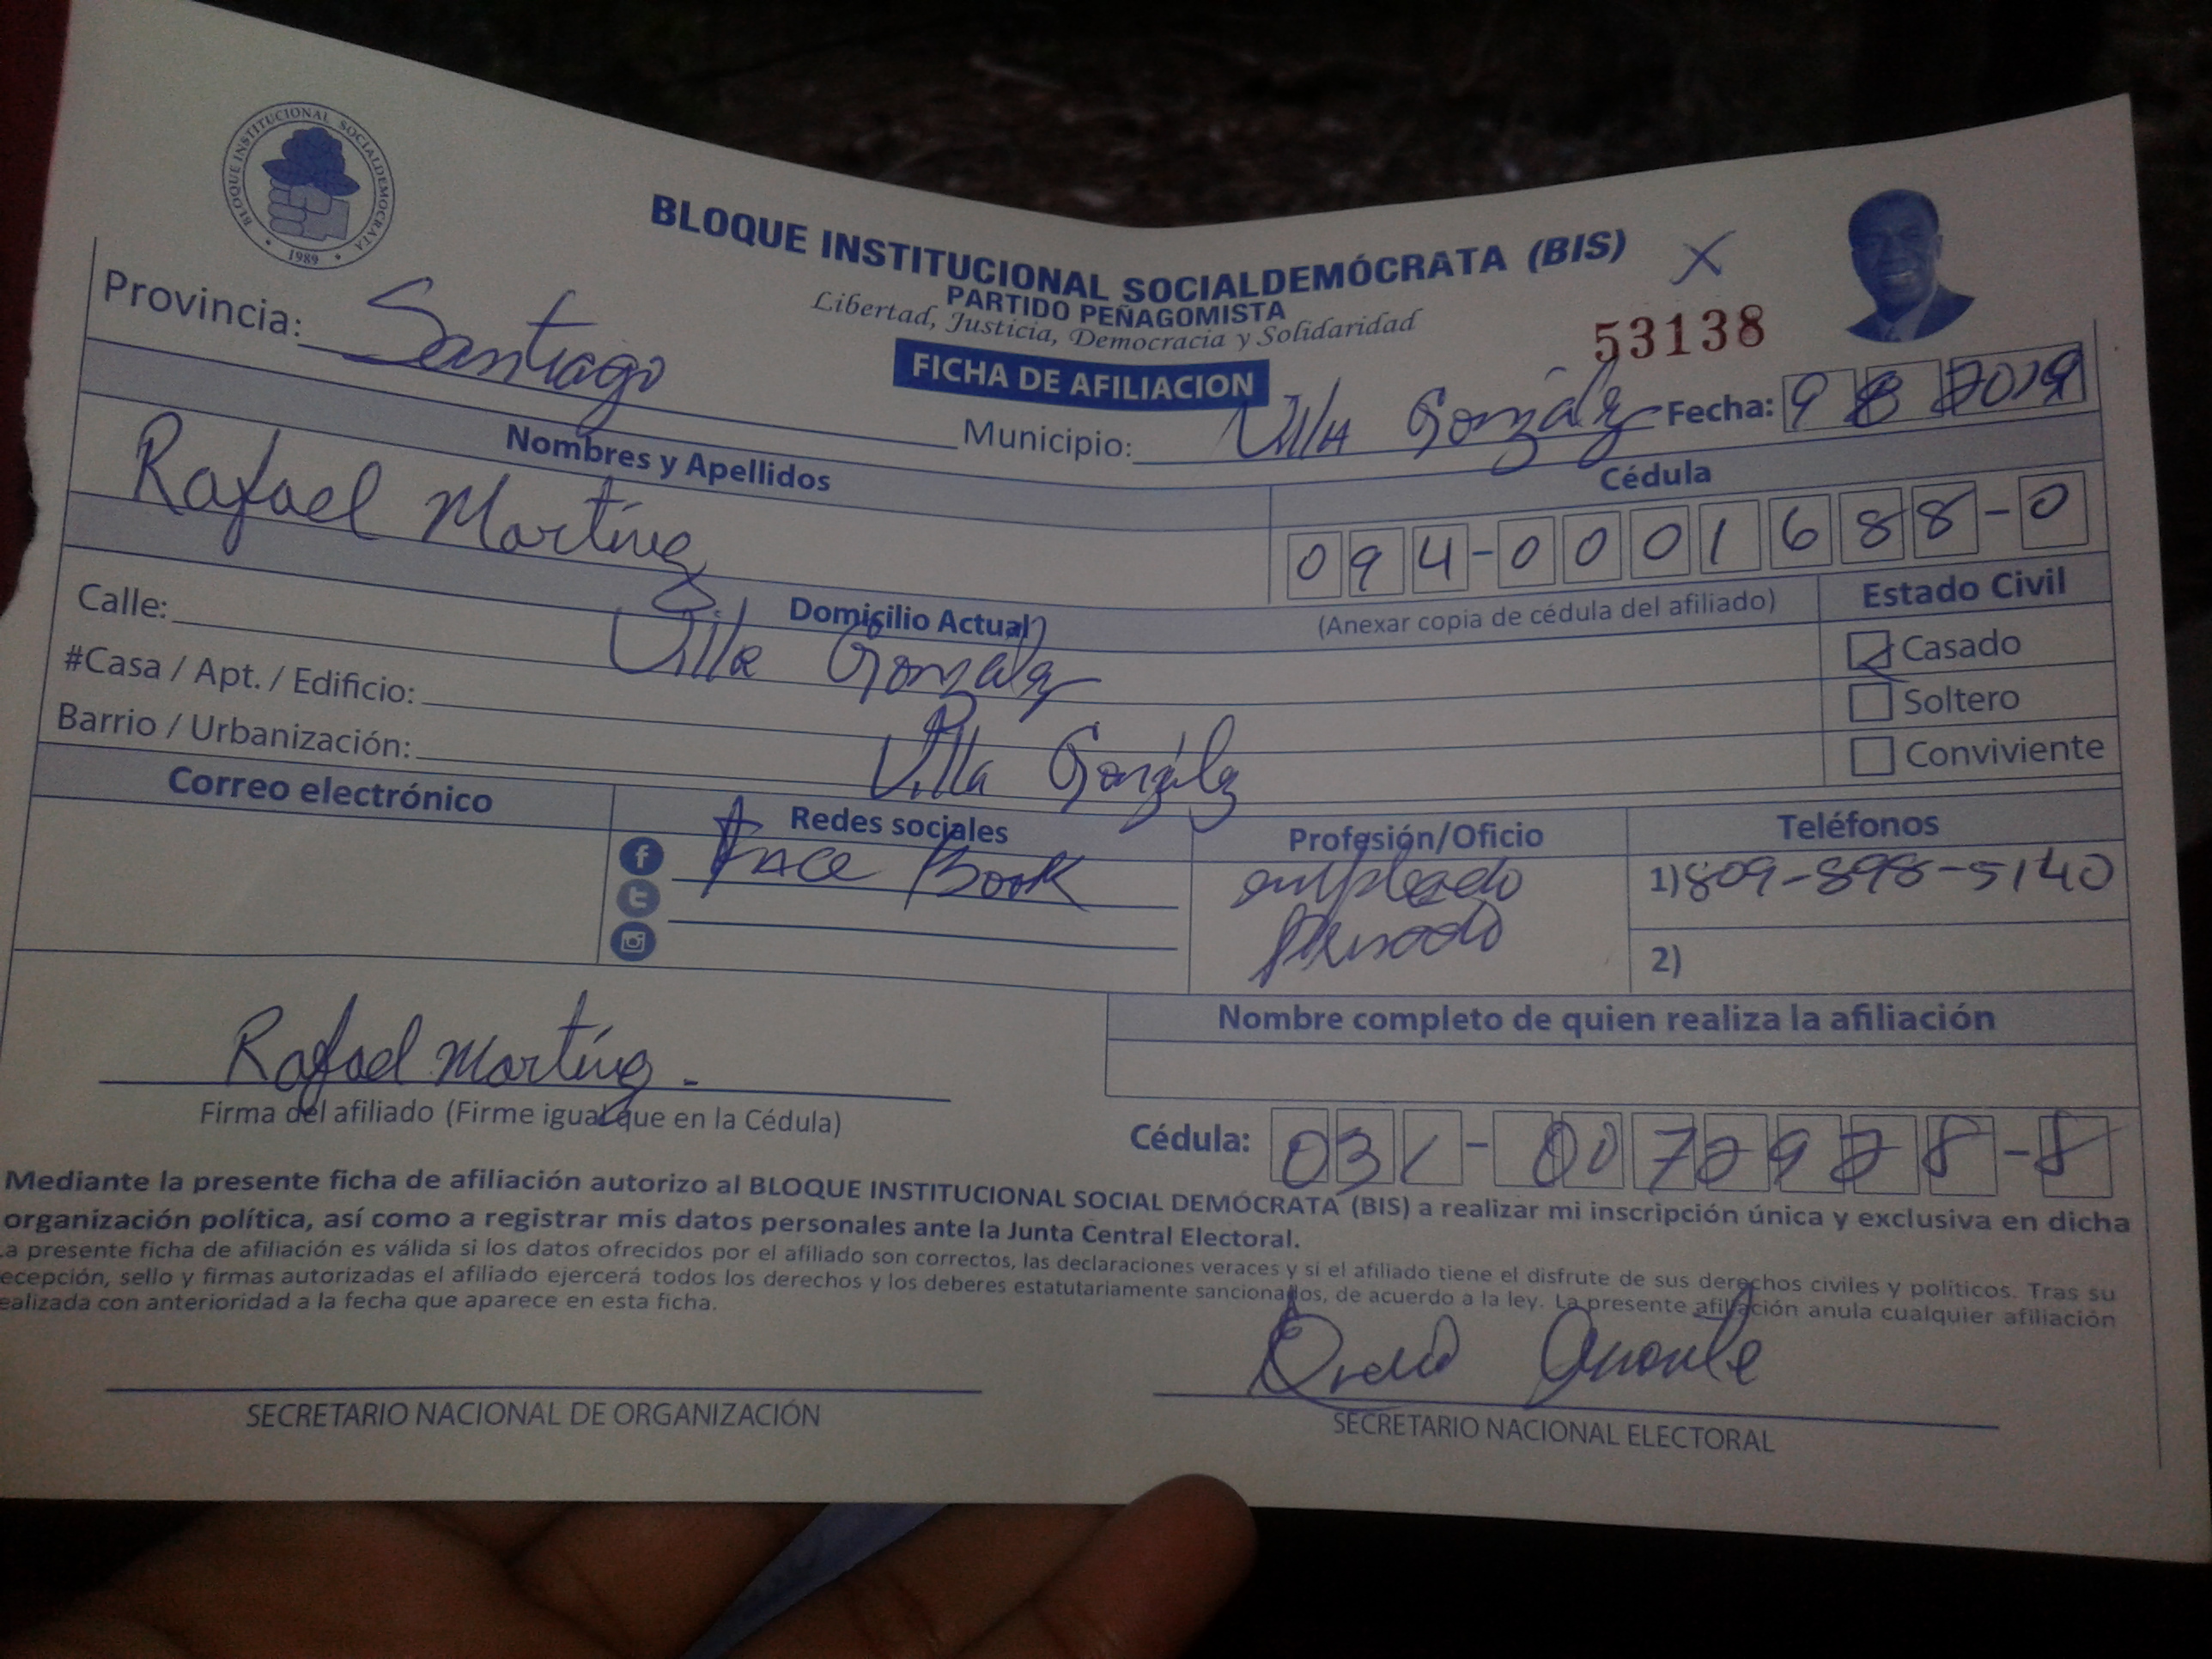 BLOQUE INSTITUCIONAL SOCIALDEMOCRATA
1989
BLOQUE INSTITUCIONAL SOCIALDEMÓCRATA (BIS) X
PARTIDO PEÑAGOMISTA
Libertad, Justicia, Democracia y Solidaridad
53138
FICHA DE AFILIACION
Provincia: Santiago Municipio: Villa González Fecha: 9 8 2019
Nombres y Apellidos Cédula
Rafael Martínez 094-0001688-0
Domicilio Actual (Anexar copia de cédula del afiliado) Estado Civil
Calle: Villa González Casado
#Casa / Apt. / Edificio: Soltero
Barrio / Urbanización: Villa González Conviviente
Correo electrónico Redes sociales Profesión/Oficio Teléfonos
Face Book empleado 1) 809-898-5140
privado 2)
Nombre completo de quien realiza la afiliación
Rafael Martínez.
Firma del afiliado (Firme igual que en la Cédula)
Cédula: 031-0072928-8
Mediante la presente ficha de afiliación autorizo al BLOQUE INSTITUCIONAL SOCIAL DEMÓCRATA (BIS) a realizar mi inscripción única y exclusiva en dicha
organización política, así como a registrar mis datos personales ante la Junta Central Electoral.
La presente ficha de afiliación es válida si los datos ofrecidos por el afiliado son correctos, las declaraciones veraces y si el afiliado tiene el disfrute de sus derechos civiles y políticos. Tras su
ecepción, sello y firmas autorizadas el afiliado ejercerá todos los derechos y los deberes estatutariamente sancionados, de acuerdo a la ley. La presente afiliación anula cualquier afiliación
ealizada con anterioridad a la fecha que aparece en esta ficha.
SECRETARIO NACIONAL DE ORGANIZACIÓN
SECRETARIO NACIONAL ELECTORAL